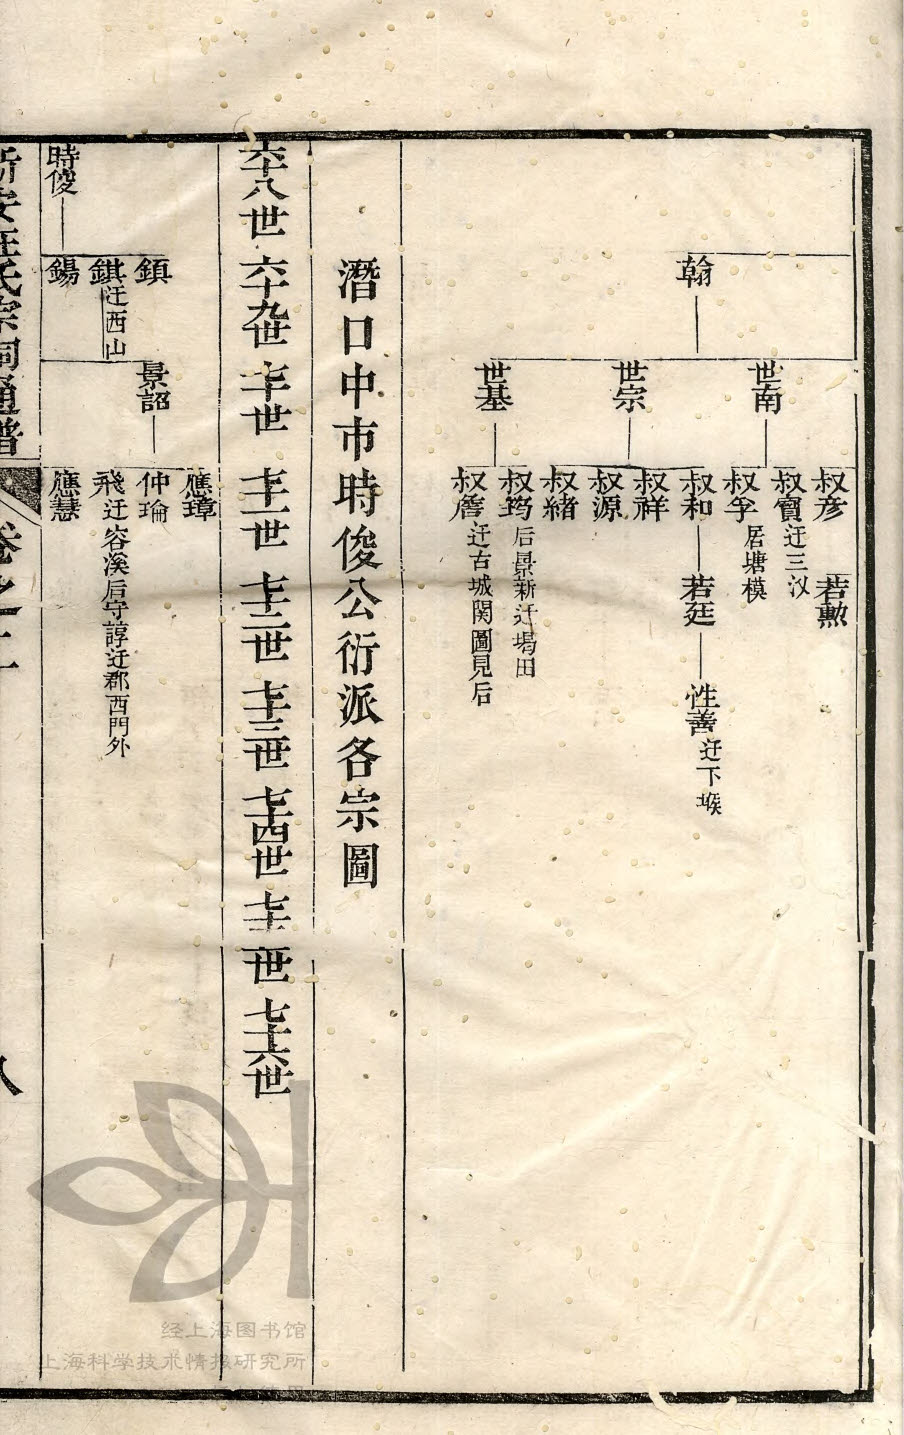 翰
世南
世宗
世基
叔彦
若勲
叔寶迁三汊
叔孚居塘模
叔和
若廷
性善迁下堠
叔祥
叔源
叔緒
叔筠后景新迁堨田
叔詹迁古城関圖見后
潛口中市時俊公衍派各宗圖
六十八世 六十九世 七十世 七十一世 七十二世 七十三世 七十四世 七十五世 七十六世
時俊
鎮
錤迁西山
鍚
景韶
應璋
仲瑜
飛迁容溪后守諄迁郡西門外
應慧
新安汪氏宗祠通譜
卷之二
八
经上海图书馆
上海科学技术情报研究所